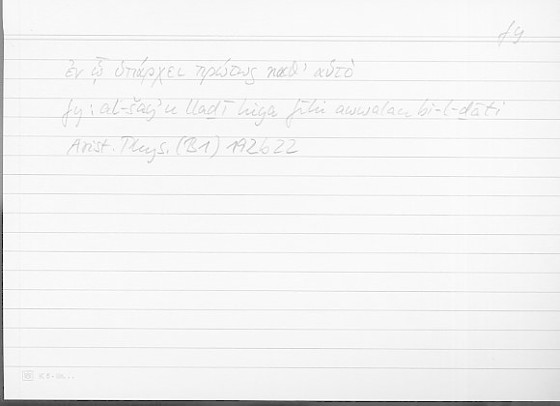 fy
ἐν ᾧ ὑπάρχει πρώτως καθ' αὑτό
fy: al-šayʾu lladī hiya fīhi awwalan bi-l-ḏāti
Arist. Phys. (B1) 192b22